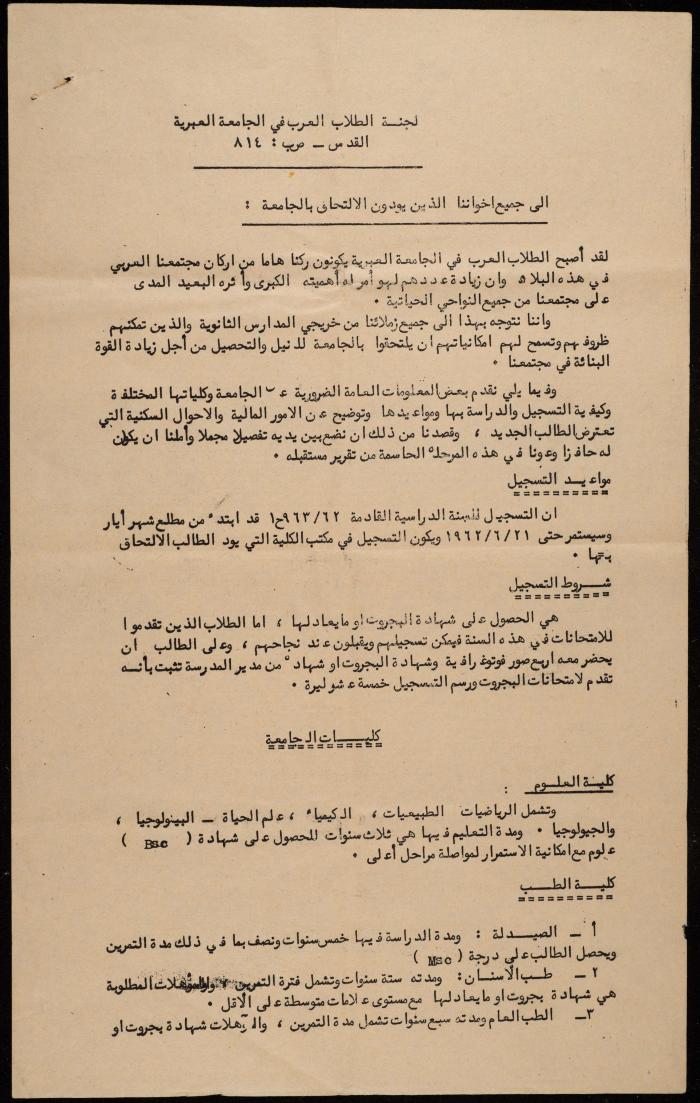 لجنـــة الطلاب العرب في الجامعة العبرية
القدس ــ ص ب : ٨١٤
الى جميع اخواننا الذين يودون الالتحاق بالجامعة :
لقد أصبح الطلاب العرب في الجامعة العبرية يكونون ركنا هاما من اركان مجتمعنا العربي
في هذه البلاد وان زيادة عددهم لهو أمر له أهميته الكبرى وأثره البعيد المدى
على مجتمعنا من جميع النواحي الحياتية .
واننا نتوجه بهذا الى جميع زملائنا من خريجي المدارس الثانوية والذين تمكنهم
ظروفهم وتسمح لهم امكانياتهم ان يلتحقوا بالجامعة للنيل والتحصيل من أجل زيادة القوة
البنائة في مجتمعنا .
وفيما يلي نقدم بعض المعلومات العامة الضرورية عن الجامعة وكلياتها المختلفة
وكيفية التسجيل والدراسة بها ومواعيدها وتوضيح عن الامور المالية والاحوال السكنية التي
تعترض الطالب الجديد ، وقصدنا من ذلك ان نضع بين يديه تفصيلا مجملا وأملنا ان يكون
له حافزا وعونا في هذه المرحلة الحاسمة من تقرير مستقبله .
مواعيـد التسجيل
ان التسجيل للسنة الدراسية القادمة ٩٦٣/٦٢ قد ابتدء من مطلع شهر أيار
وسيستمر حتى ١٩٦٢/٦/٢١ ويكون التسجيل في مكتب الكلية التي يود الطالب الالتحاق
بها .
شــروط التسجيل
هي الحصول على شهادة البجروت او ما يعادلها ، اما الطلاب الذين تقدموا
للامتحانات في هذه السنة فيمكن تسجيلهم ويقبلون عند نجاحهم ، وعلى الطالب أن
يحضر معه أربع صور فوتوغرافية وشهادة البجروت او شهادة من مدير المدرسة تثبت بأنــه
تقدم لامتحانات البجروت ورسم التسجيل خمسة عشر ليرة .
كليــــات الجامعة
كليـة العلــوم :
وتشمل الرياضيات الطبيعيات ، الكيمياء ، علم الحياة ــ البيولوجيا ،
والجيولوجيا . ومدة التعليم فيها هي ثلاث سنوات للحصول على شهادة ( Bsc )
علوم مع امكانية الاستمرار لمواصلة مراحل أعلى .
كلية الطــب
أ ــ الصيــدلة : ومدة الدراسة فيها خمس سنوات ونصف بما في ذلك مدة التمرين
ويحصل الطالب على درجة ( Msc )
٢ ــ طب الاسنان: ومدته ستة سنوات وتشمل فترة التمرين والمؤهلات المطلوبة
هي شهادة بجروت او ما يعادلها مع مستوى علامات متوسطة على الاقل .
٣ــ الطب العام ومدته سبع سنوات تشمل مدة التمرين ، والمؤهلات شهادة بجروت او